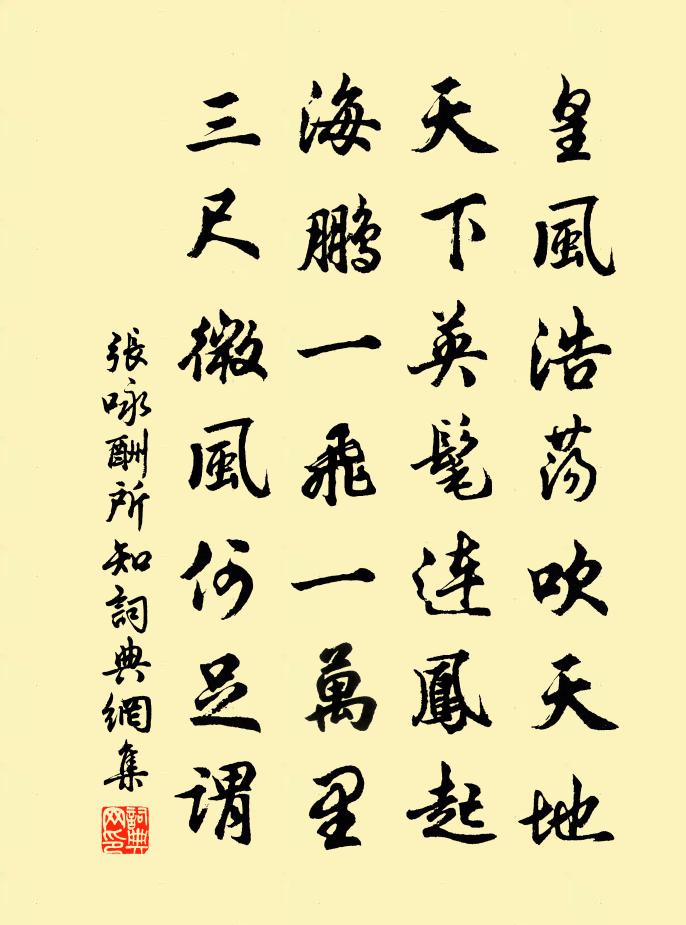 皇風浩蕩吹天地
天下英髦連鳳起
海鵬一飛一萬里
三尺微風何足謂
張咏酬所知詞典網集
詞典網印